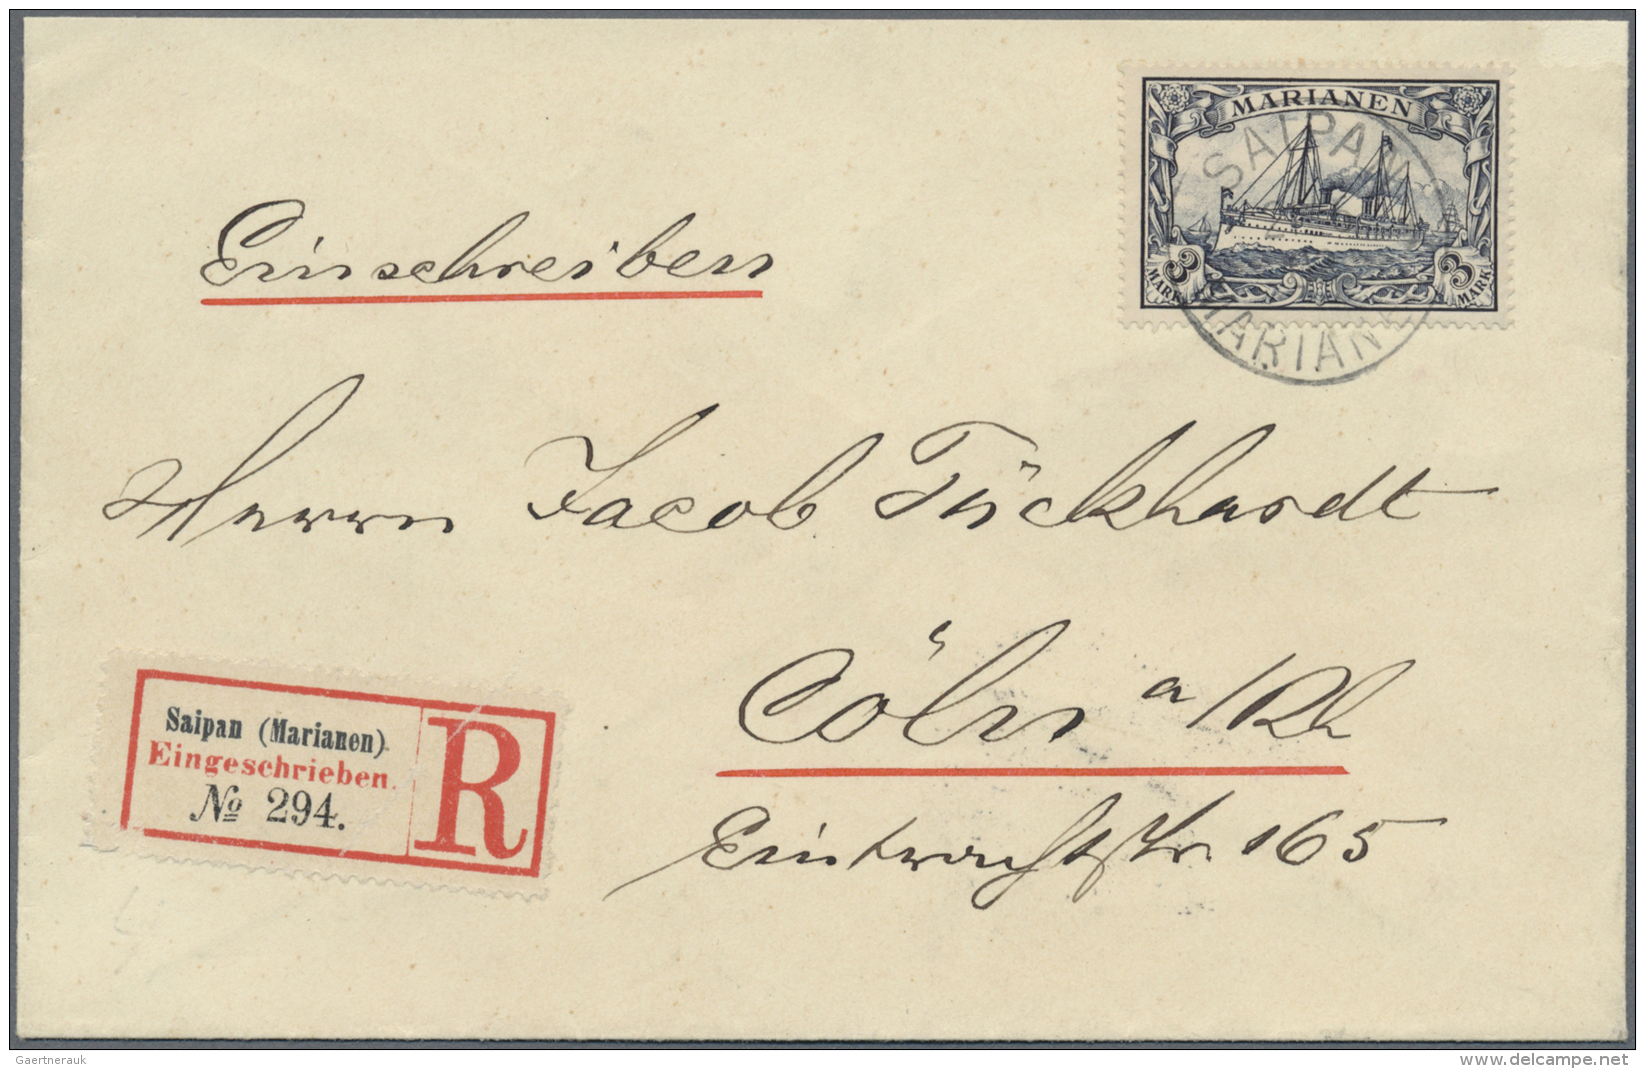 MARIANEN
3 MARK
3 MARK
SAIPAN
MARIANE
Einschreiben
Herrn Jacob Tückhardt
Cöln a/Rh
Eintrachtstr. 165
Saipan (Marianen)
Eingeschrieben.
№ 294.
R
Gaertnerauk
www.delcampe.net